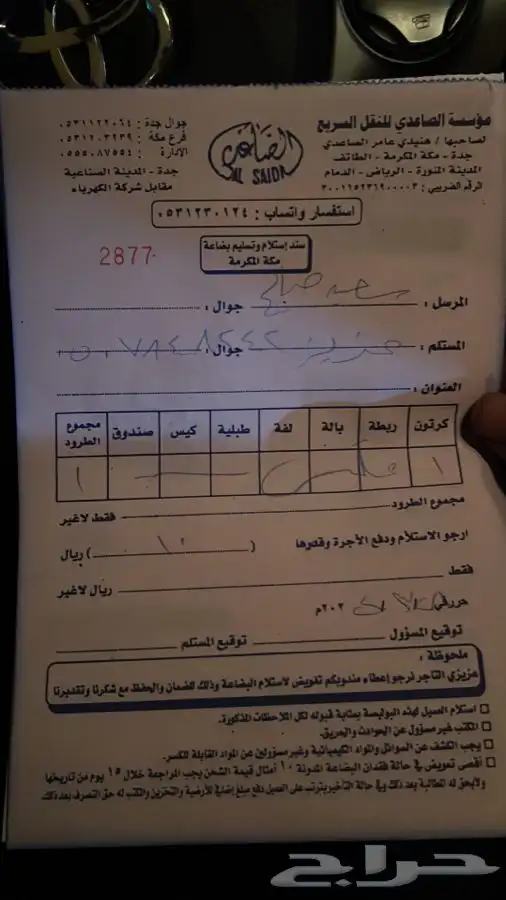 مؤسسة الصاعدي للنقل السريع
لصاحبها / هنيدي عامر الصاعدي
جدة - مكة المكرمة - الطائف
المدينة المنورة - الرياض - الدمام
الرقم الضريبي : ٣٠٠١١٥٢٣١٩٠٠٠٠٣
AL SAIDI
جوال جدة : ٠٥٣١١٢٢٠٦٤
فرع مكة : ٠٥٣١٢٠٣٢٣٩
الادارة : ٠٥٥٥٠٨٧٥٥١
جدة - المدينة الصناعية
مقابل شركة الكهرباء
استفسار واتساب : ٠٥٣١٢٣٠١٢٤
سند إستلام وتسليم بضاعة
مكة المكرمة
2877
المرسل : سعيد صالح جوال :
المستلم : عزيز جوال :
العنوان :
كرتون ربطة بالة لفة طبلية كيس صندوق مجموع الطرود
١ ١
مجموع الطرود فقط لاغير
ارجو الاستلام ودفع الأجرة وقدرها ( ١٠ ) ريال
فقط ريال لاغير
حرر في ٢٠٢م
توقيع المسؤول توقيع المستلم
ملحوظة :
عزيزي التاجر نرجو إعطاء مندوبكم تفويض لاستلام البضاعة وذلك للضمان والحفظ مع شكرنا وتقديرنا
استلام العميل لهذه البوليصة بمثابة قبوله لكل الملاحظات المذكورة.
المكتب غير مسؤول عن الحوادث والحريق.
يجب الكشف عن السوائل والمواد الكيميائية وغير مسؤولين عن المواد القابلة للكسر.
أقصى تعويض في حالة فقدان البضاعة المدونة ١٠ أمثال قيمة الشحن يجب المراجعة خلال ١٥ يوم من تاريخها
ولايحق له المطالبة بعد ذلك وفي حالة التأخير يترتب على العميل دفع مبلغ إضافي للأرضية والتخزين والمكتب له حق التصرف بعد ذلك
حراج